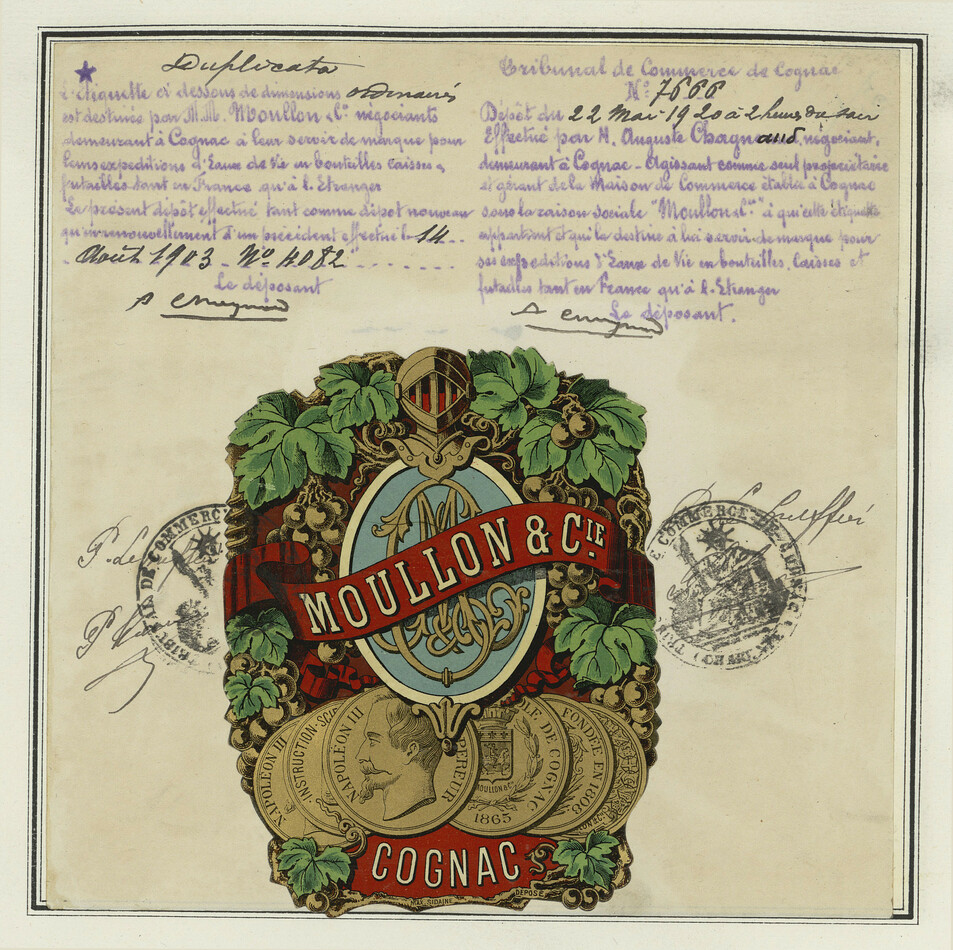 Duplicata
L'Etiquette ci dessous de dimensions ordinaires
est destinée par M.M. Moullon & Cie négociants
demeurant à Cognac à leur service de marque pour
leurs expeditions d'Eaux de Vie en bouteilles caisses &
futailles tant en France qu'à l'Etranger
Le présent dépôt effectué tant comme dépot nouveau
qu'en renouvellement d'un précédent effectué le 14
Août 1903 No 4082
Le déposant
Tribunal de Commerce de Cognac
No 7666
Dépôt du 22 Mai 1920 à 2 heures du soir
Effectué par M. Auguste Chagnaud, négociant,
demeurant à Cognac - Agissant comme seul propriétaire
et gérant de la Maison de Commerce établie à Cognac
sous la raison sociale "Moullon & Cie" à qui cette étiquette
appartient et qui la destine à lui servir de marque pour
ses expeditions d'Eaux de Vie en bouteilles, Caisses et
futailles tant en France qu'à l'Etranger
Le déposant.
MOULLON & CIE
NAPOLÉON III
INSTRUCTION
NAPOLÉON III
EMPEREUR
VILLE DE COGNAC
MOULLON & Cie
1865
FONDÉE EN 1808
COGNAC
DÉPOSÉ
TRIBUNAL DE COMMERCE
DE COMMERCE DE COGNAC